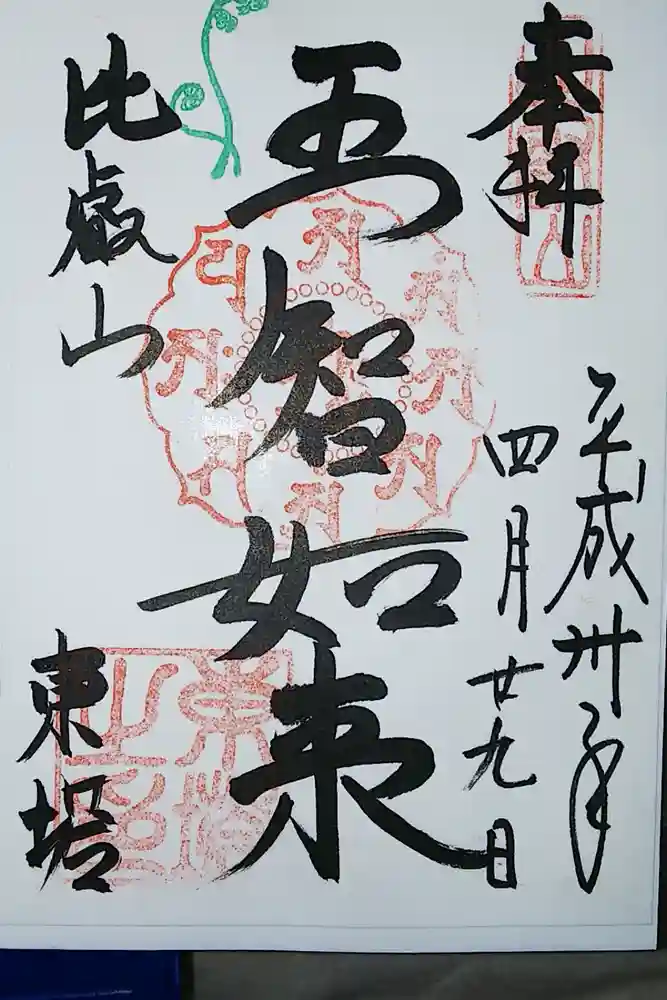 奉拝
平成卅年
四月廿九日
五智如来
比叡山
東塔